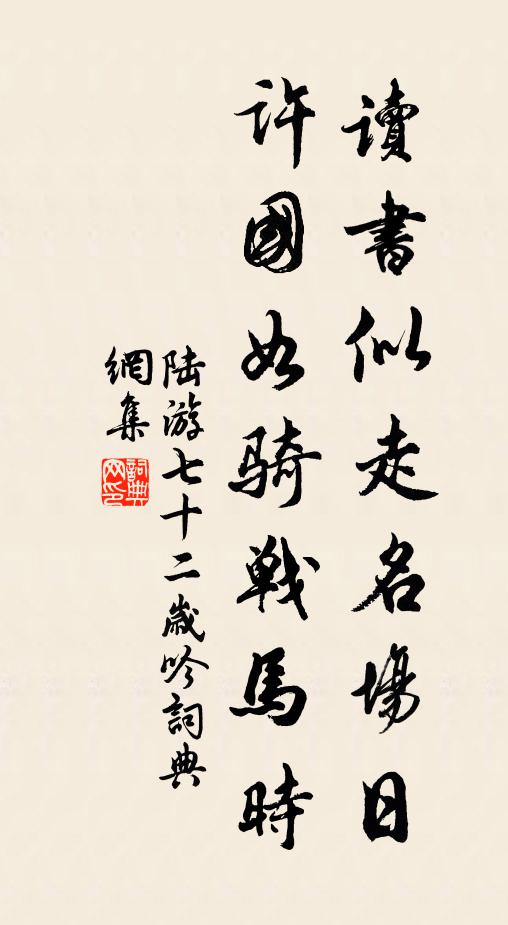 讀書似走名場日
許國如騎戰馬時
陆游七十二歲吟詞典
網集
詞典
网印